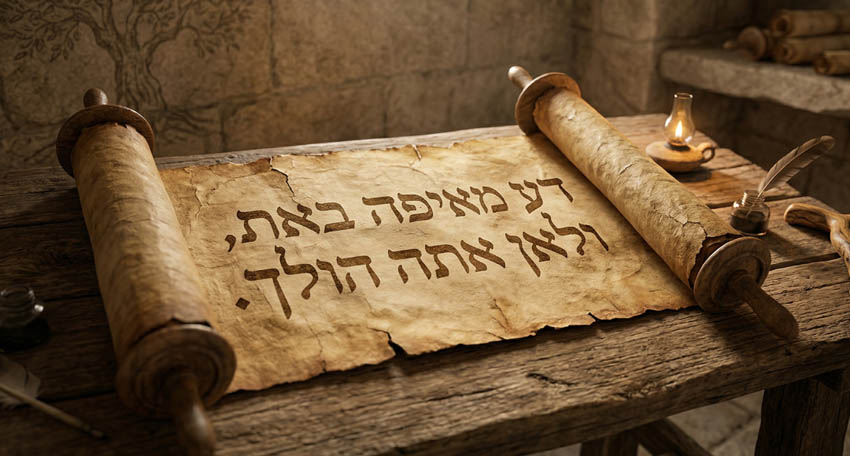 דע מאיפה באת,
ולאן אתה הולך.